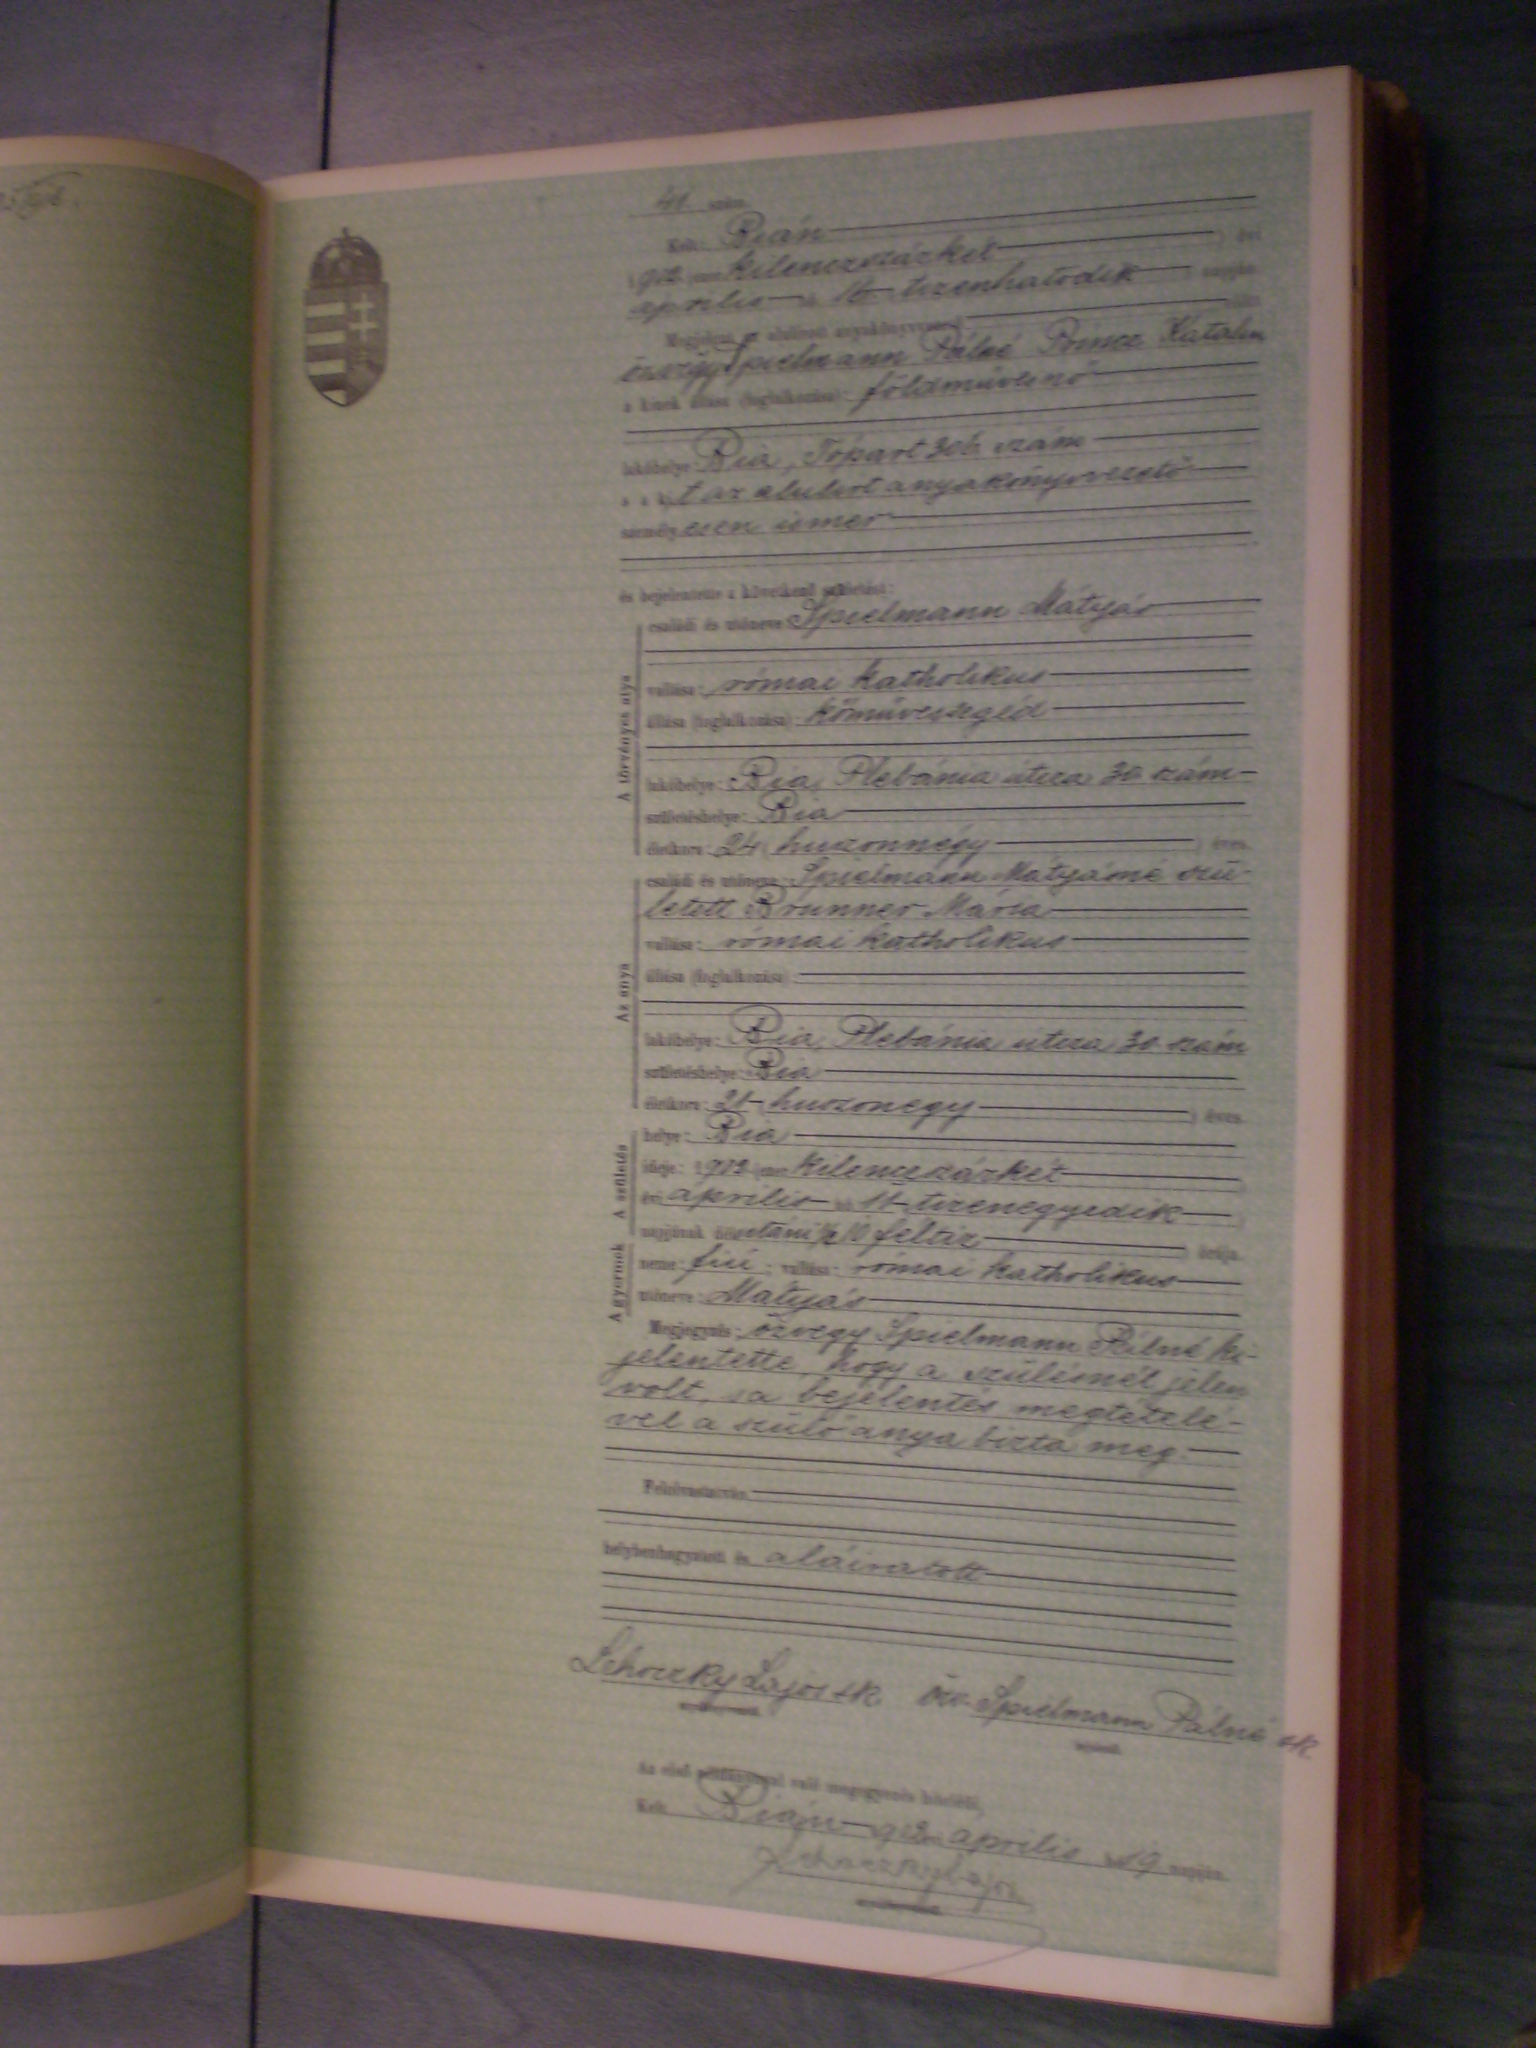 41. szám.
Kelt: Bián
1902 (ezer kilenczszázkét ) évi
április hó 16 tizenhatodik napján
Megjelent az alulírott anyakönyvvezető előtt
özvegy Spielmann Pálné Princz Katalin
a kinek állása (foglalkozása): földmüvesnő
lakóhelye: Bia, Tópart 306 szám
a kit az alulirt anyakönyvvezető
személyesen ismer
és bejelentette a következő születést:
A törvényes atya
családi és utóneve: Spielmann Mátyás
vallása: római katholikus
állása (foglalkozása): kőmüvessegéd
lakóhelye: Bia, Plebánia utcza 30 szám
születéshelye: Bia
életkora: 24 (huszonnégy ) éves.
Az anya
családi és utóneve: Spielmann Mátyásné szü-
letett Brunner Mária
vallása: római katholikus
állása (foglalkozása):
lakóhelye: Bia, Plebánia utcza 30 szám
születéshelye: Bia
életkora: 21 (huszonegy ) éves
A születés
helye: Bia
ideje: 1902 (ezer kilenczszázkét
évi április hó 11 tizenegyedik
napjának délutáni ½10 féltíz ) órája.
A gyermek
neme: fiú ; vallása: római katholikus
utóneve: Mátyás
Megjegyzés: özvegy Spielmann Pálné ki-
jelentette, hogy a szülésnél jelen
volt, sa bejelentés megtételé-
vel a szülő anya bizta meg.
Felolvastatván,
helybenhagyatott és aláiratott
Lehoczky Lajos sk özv. Spielmann Pálné sk
anyakönyvvezető. bejelentő.
Az első példánnyal való megegyezés hiteléül,
Kelt Bián 902 április hó 19 napján.
Lehoczky Lajos
anyakönyvvezető.